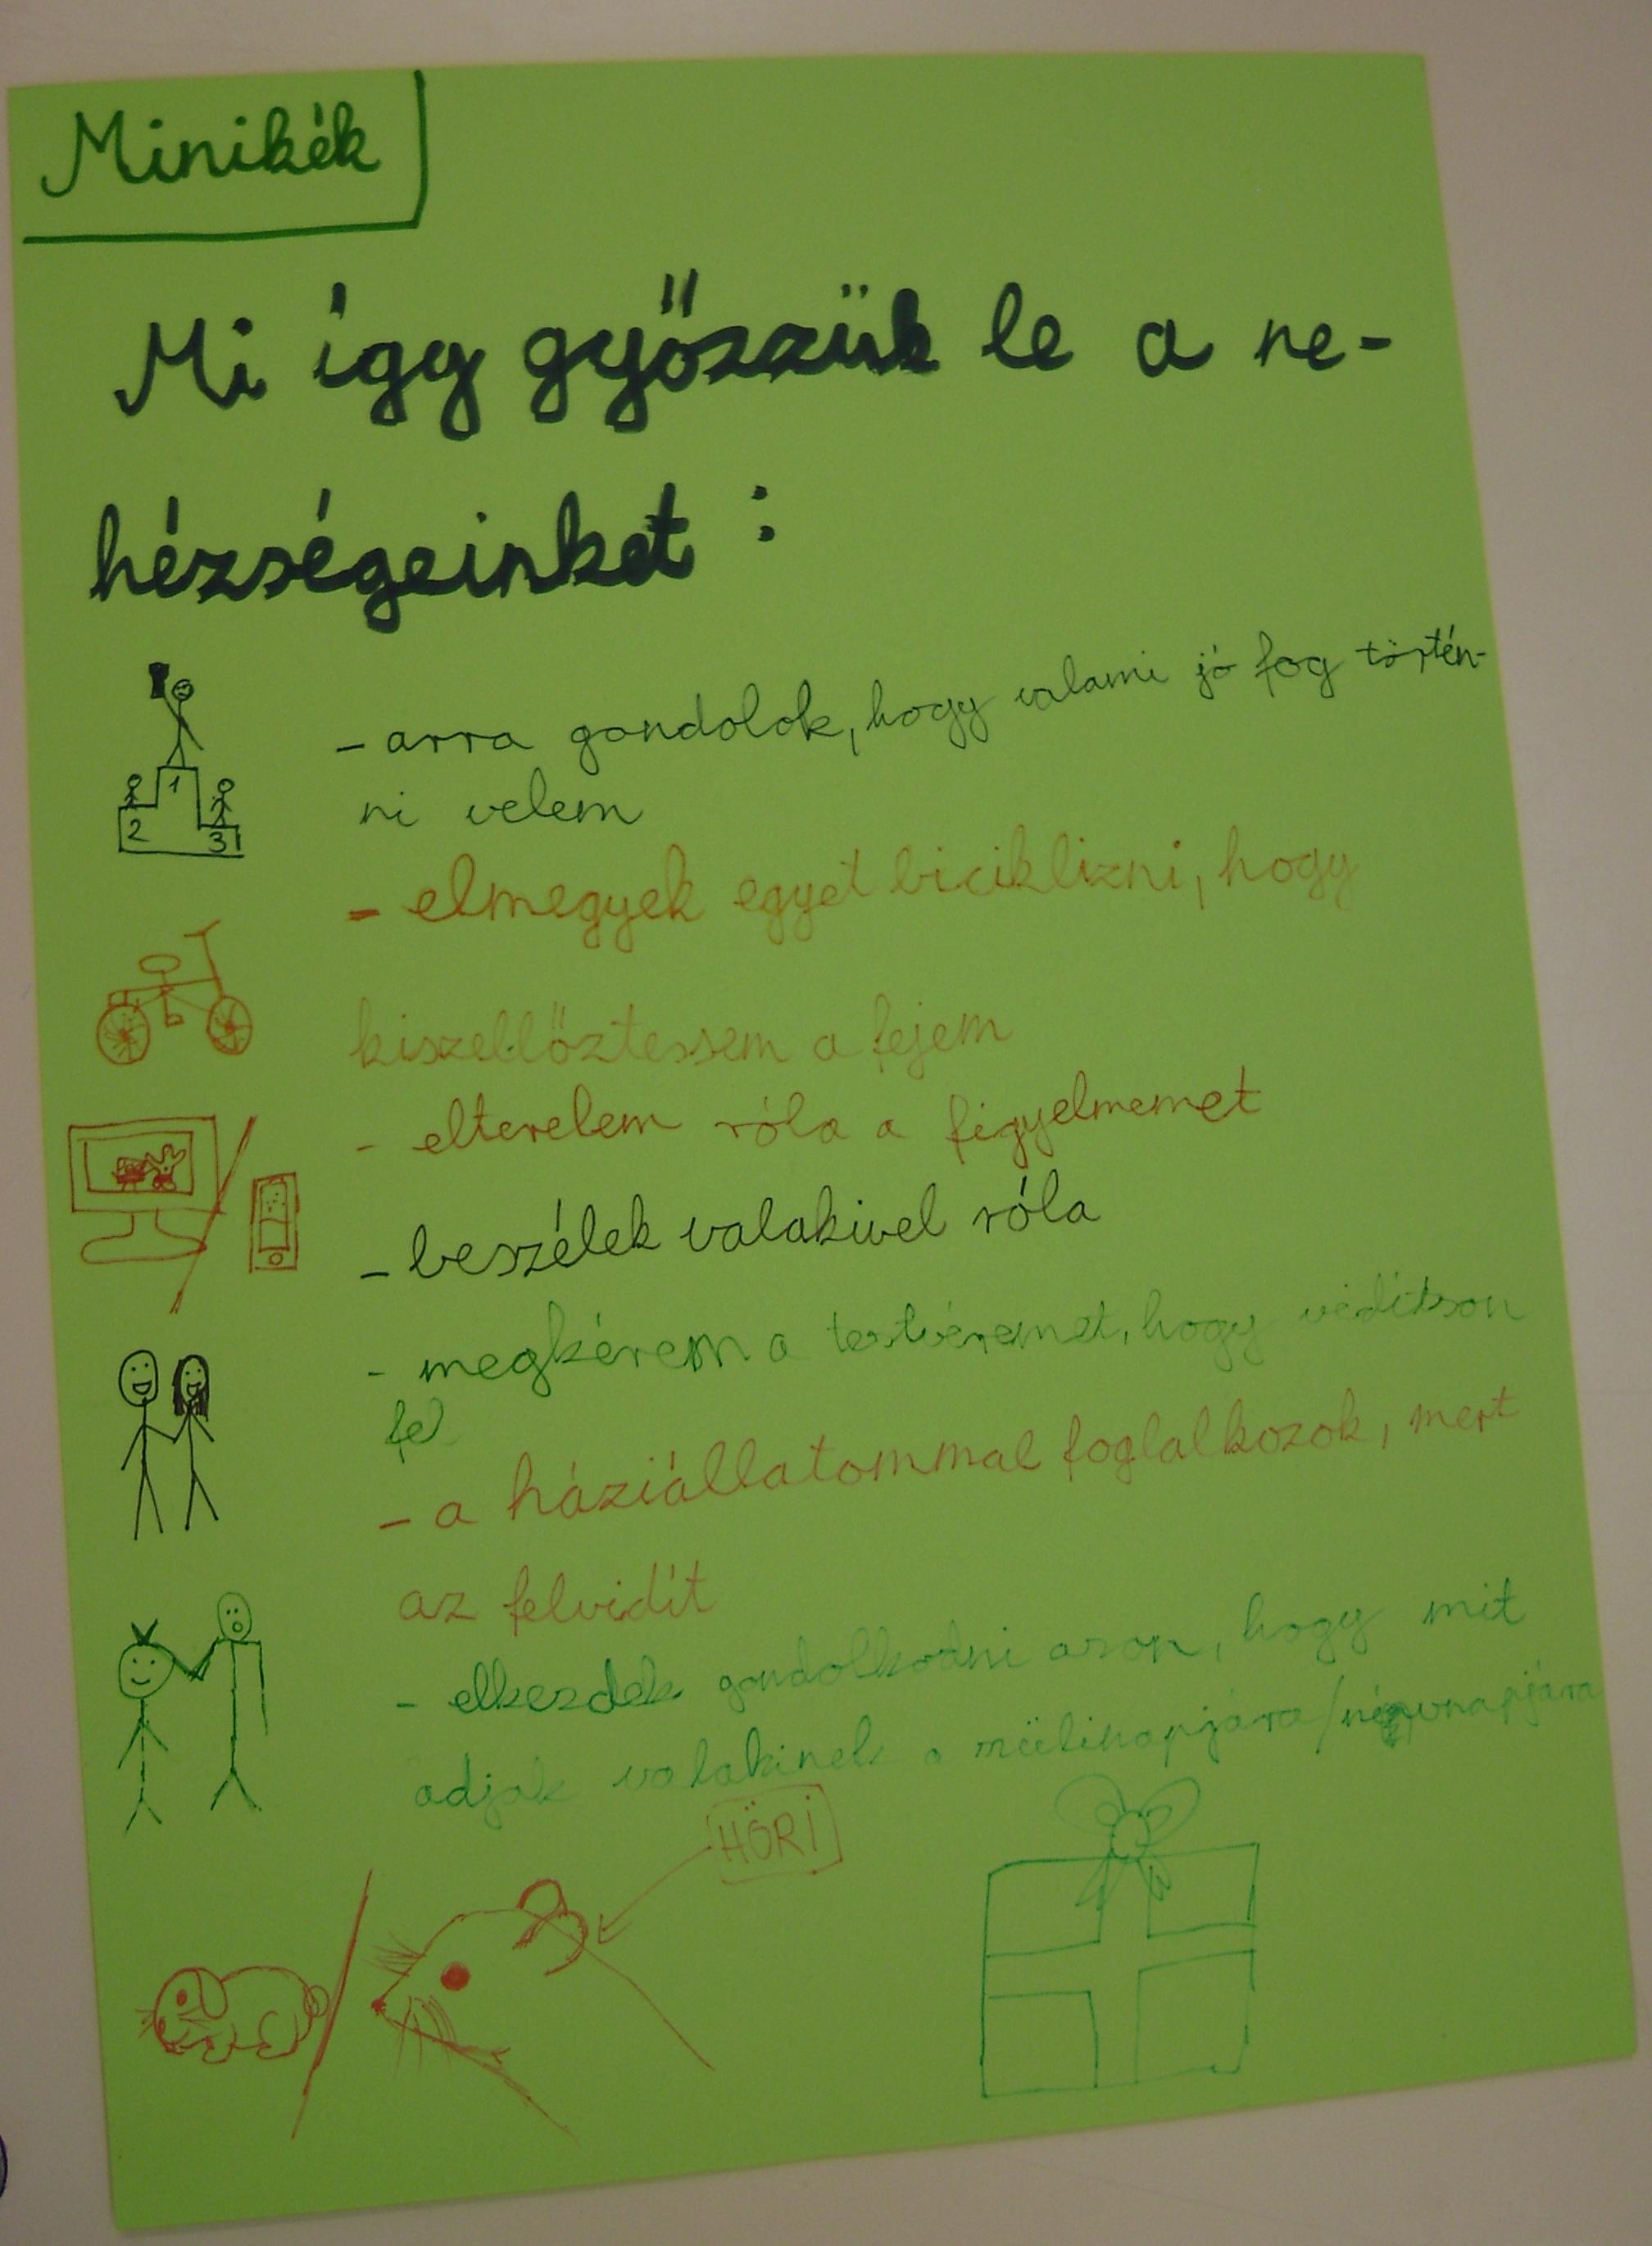 Minikék
Mi így győzzük le a ne-
hézségeinket :
- arra gondolok, hogy valami jó fog történ-
ni velem
1
2
3
- elmegyek egyet biciklizni, hogy
kiszellőztessem a fejem
- elterelem róla a figyelmemet
- beszélek valakivel róla
- megkérem a testvéremet, hogy vidítson
fel
- a háziállatommal foglalkozok, mert
az felvidít
- elkezdek gondolkodni azon, hogy mit
adjak valakinek a szülinapjára/névnapjára
HÖRI